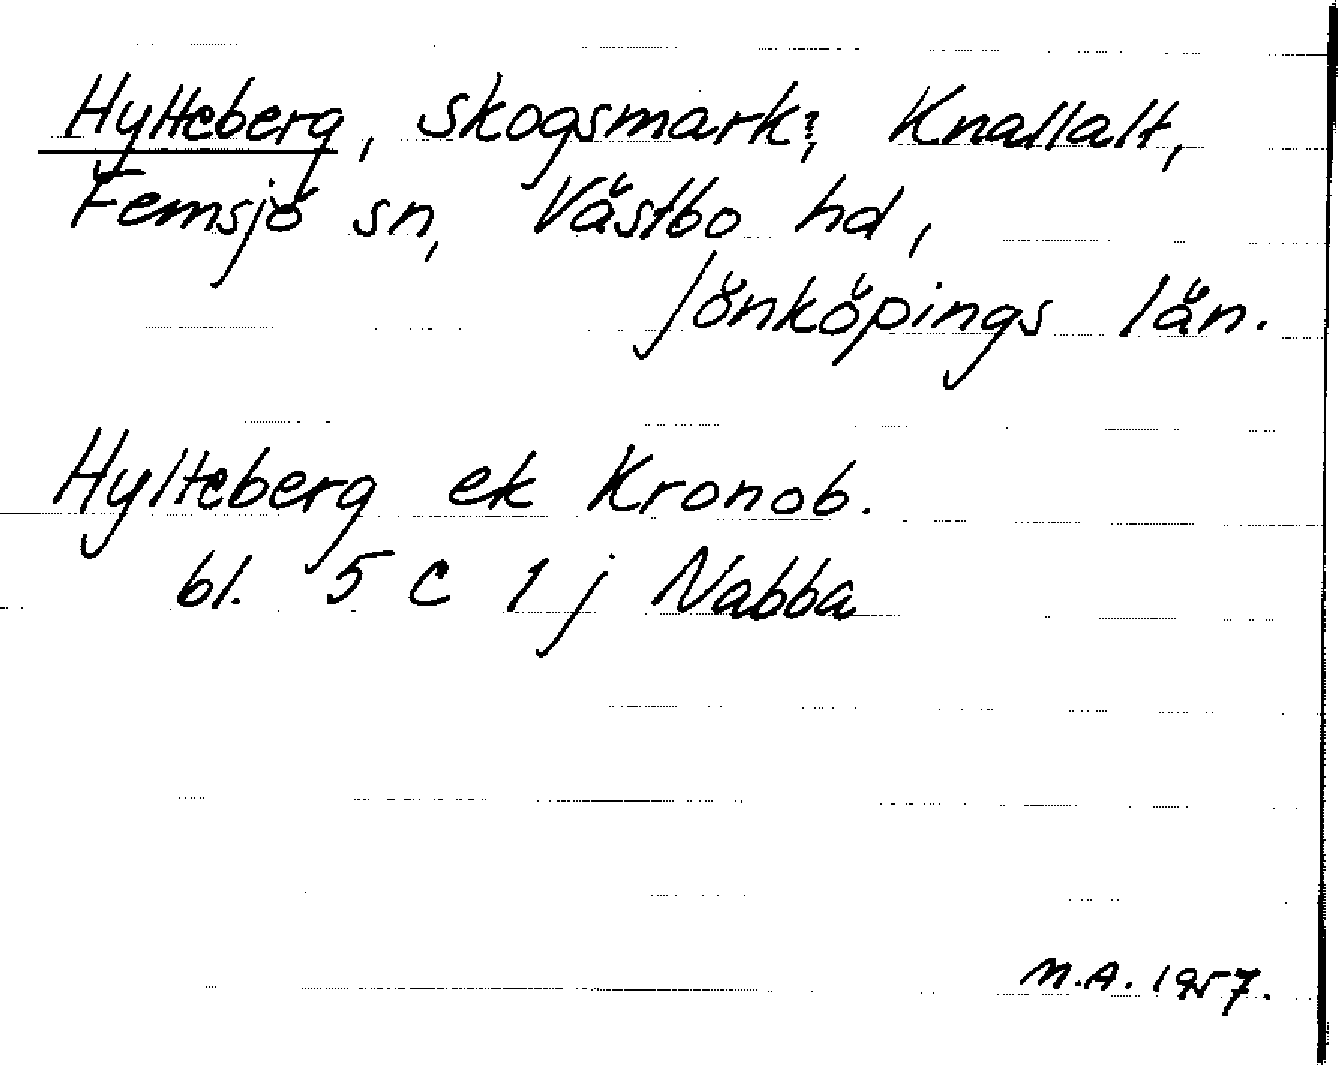 Hylteberg, skogsmark?, Knallalt,
Femsjö sn, Västbo hd,
Jönköpings län.
Hylteberg ek Kronob.
bl. 5 C 1 j Nabba
M.A. 1957.